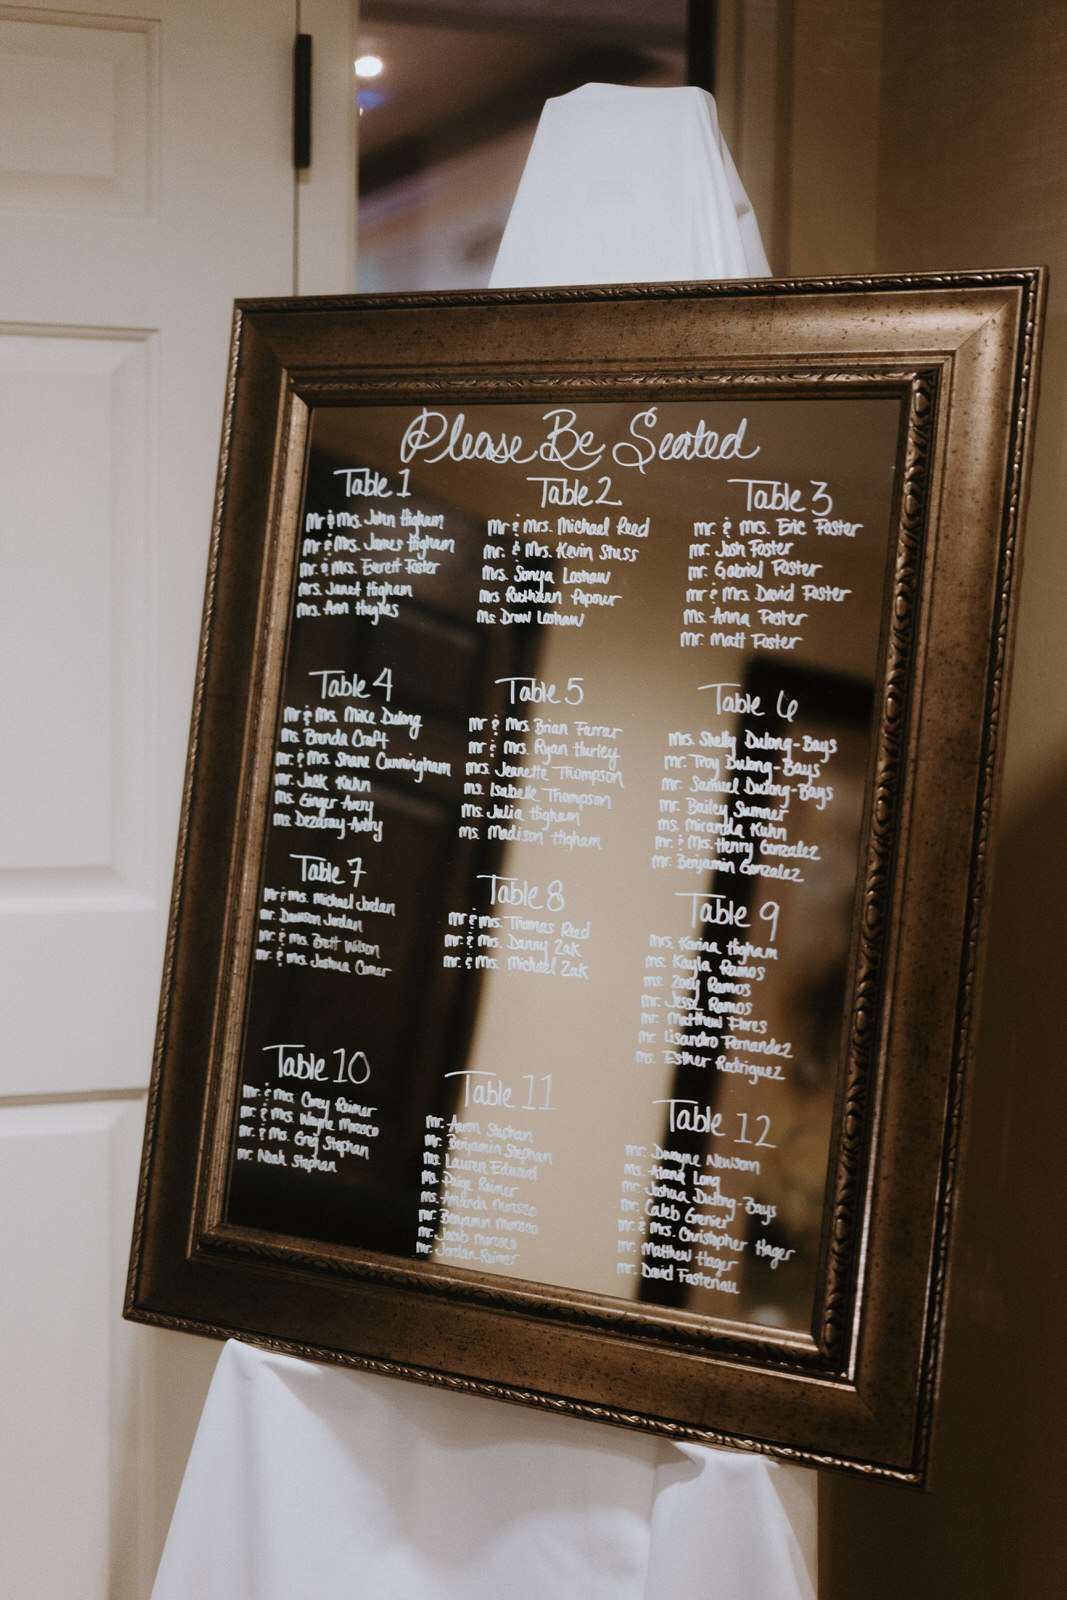 Please Be Seated
Table 1
Mr & Mrs. John Higham
Mr & Mrs. James Higham
Mr. & Mrs. Everett Foster
Mrs. Janet Higham
Mrs. Ann Hughes
Table 2
Mr & Mrs. Michael Reed
Mr. & Mrs. Kevin Stuss
Mrs. Sonya Loshaw
Mrs Ruthann Popour
Ms. Drew Loshaw
Table 3
Mr. & Mrs. Eric Foster
Mr. Josh Foster
Mr. Gabriel Foster
Mr & Mrs. David Foster
Ms. Anna Foster
Mr. Matt Foster
Table 4
Mr & Ms. Mike Dulong
Ms. Brenda Craft
Mr. & Mrs. Shane Cunningham
Mr. Jack Kuhn
Ms. Ginger Avery
Ms. Dezaray Avery
Table 5
Mr & Mrs. Brian Farrar
Mr & Mrs. Ryan Hurley
Mrs. Jeanette Thompson
Ms. Isabelle Thompson
Ms. Julia Higham
Ms. Madison Higham
Table 6
Mrs. Shelly Dulong-Bays
Mr. Troy Dulong-Bays
Mr. Samuel Dulong-Bays
Mr. Bailey Sumner
Ms. Miranda Kuhn
Mr. & Mrs. Henry Gonzalez
Mr. Benjamin Gonzalez
Table 7
Mr & Mrs. Michael Jordan
Mr. Dawson Jordan
Mr. & Mrs. Brett Wilson
Mr. & Mrs. Joshua Comer
Table 8
Mr & Mrs. Thomas Reed
Mr. & Mrs. Danny Zak
Mr. & Mrs. Michael Zak
Table 9
Mrs. Karina Higham
Ms. Kayla Ramos
Ms. Zoey Ramos
Mr. Jesse Ramos
Mr. Matthew Flores
Mr. Lisandro Fernandez
Ms. Esther Rodriguez
Table 10
Mr. & Mrs. Corey Reimer
Mr. & Mrs. Wayne Morosco
Mr. & Ms. Greg Stephan
Mr. Noah Stephan
Table 11
Mr. Aaron Stephan
Mr. Benjamin Stephan
Ms. Lauren Edward
Ms. Paige Reimer
Ms. Amanda Morosco
Mr. Benjamin Morosco
Mr. Jacob Morosco
Mr. Jordan Reimer
Table 12
Mr. Dwayne Newsom
Ms. Alana Long
Mr. Joshua Dulong-Bays
Mr. Caleb Grenier
Mr. & Mrs. Christopher Hager
Mr. Matthew Hager
Mr. David Fastenau